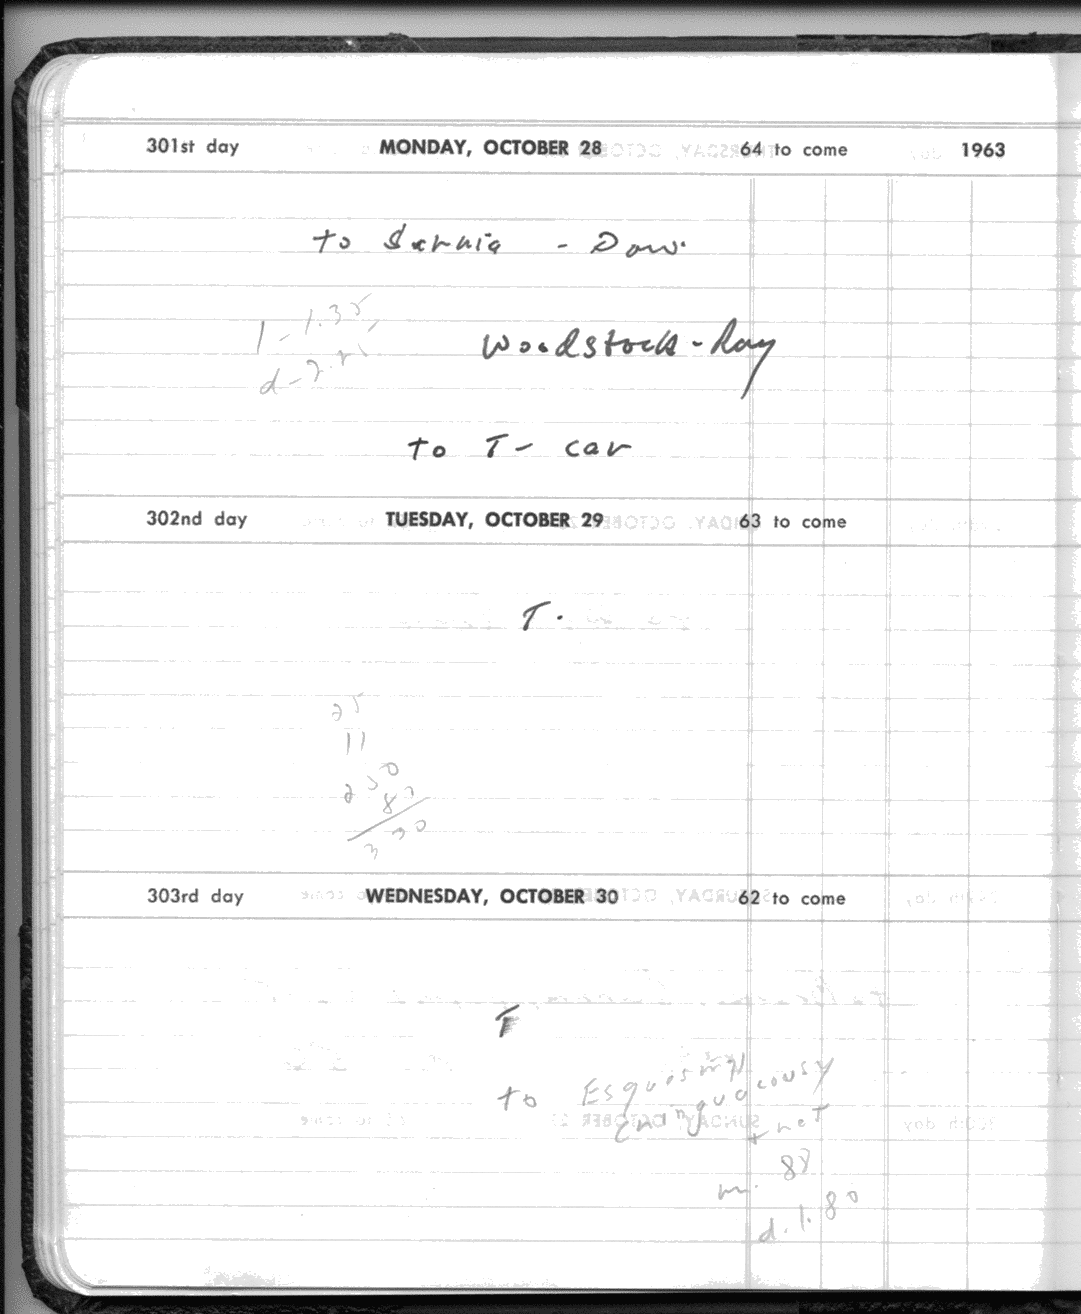 301st day MONDAY, OCTOBER 28 64 to come 1963
to Sarnia - Dow.
1 - 1.35
d -
Woodstock - Ray
to T - car
302nd day TUESDAY, OCTOBER 29 63 to come
T.
25
11
250
303rd day WEDNESDAY, OCTOBER 30 62 to come
T
to Esquesing
Chinguacousy
+ net
m. 88
d. 1.80